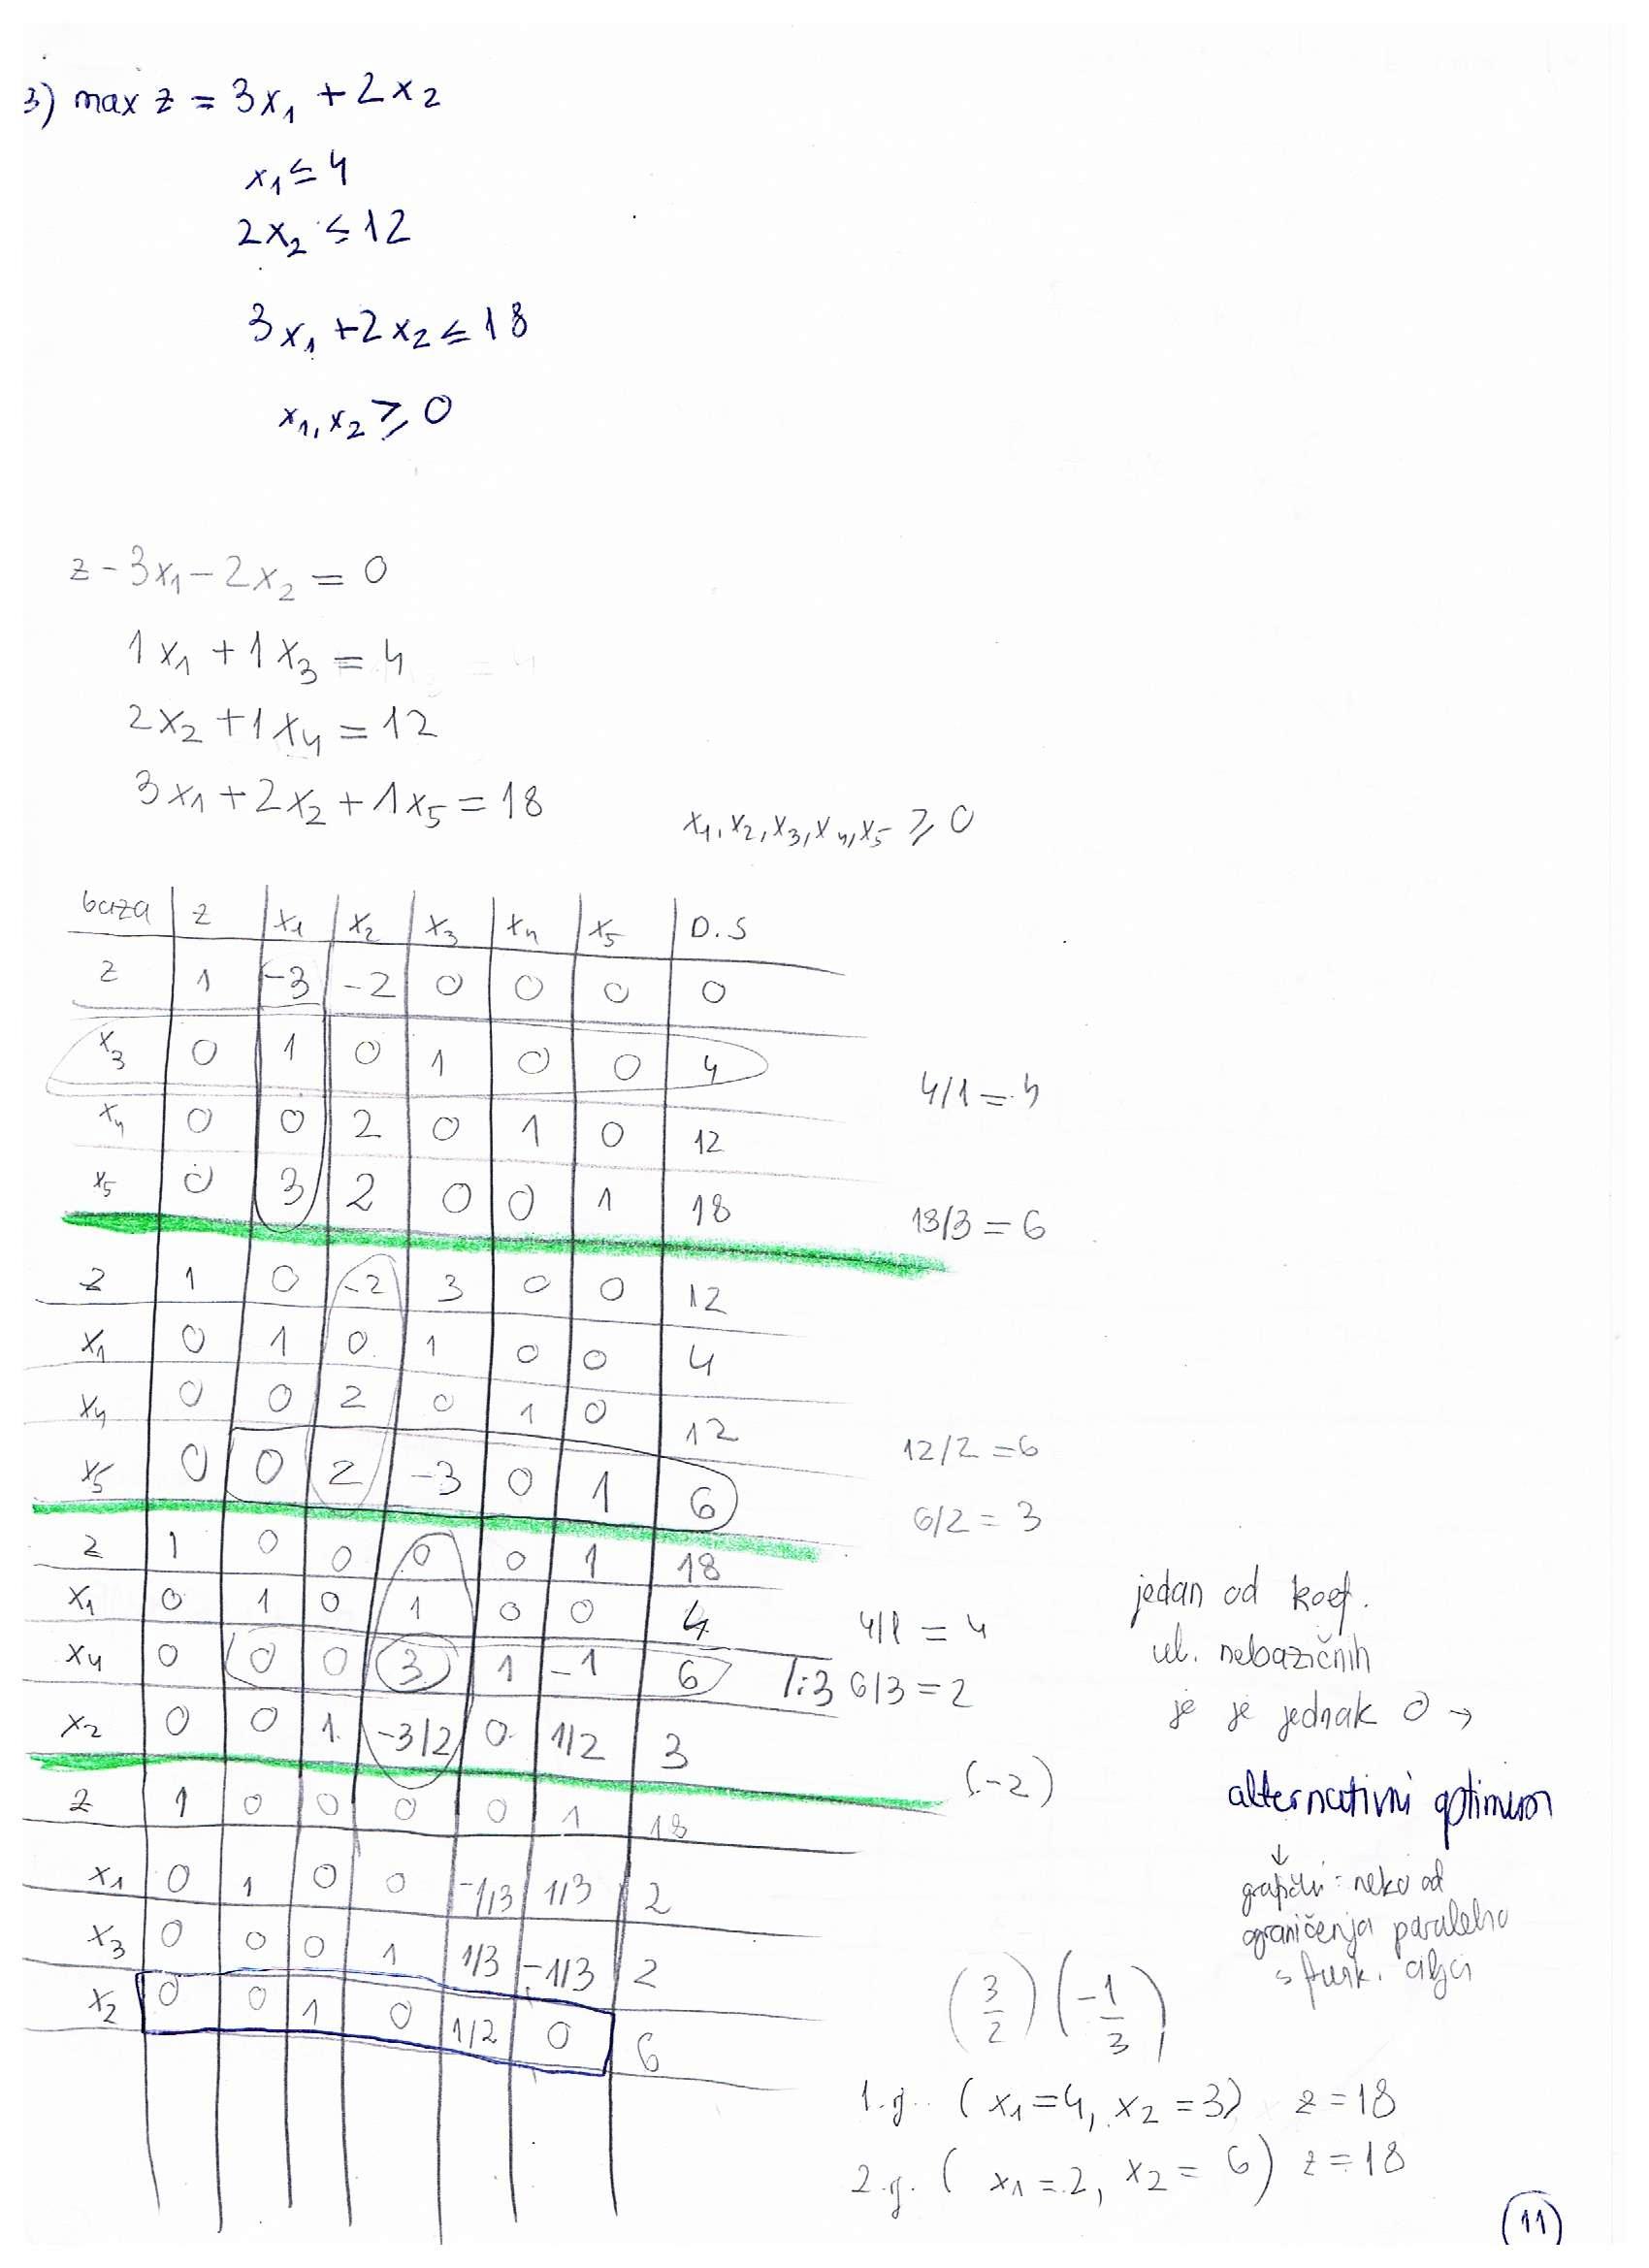 3) max z = 3x₁ + 2x₂
x₁ ≤ 4
2x₂ ≤ 12
3x₁ + 2x₂ ≤ 18
x₁, x₂ ≥ 0
z - 3x₁ - 2x₂ = 0
1x₁ + 1x₃ = 4
2x₂ + 1x₄ = 12
3x₁ + 2x₂ + 1x₅ = 18
x₁, x₂, x₃, x₄, x₅ ≥ 0
baza z x₁ x₂ x₃ x₄ x₅ D.S
z 1 -3 -2 0 0 0 0
x₃ 0 1 0 1 0 0 4 4/1 = 4
x₄ 0 0 2 0 1 0 12
x₅ 0 3 2 0 0 1 18 18/3 = 6
z 1 0 -2 3 0 0 12
x₁ 0 1 0 1 0 0 4
x₄ 0 0 2 0 1 0 12 12/2 = 6
x₅ 0 0 2 -3 0 1 6 6/2 = 3
z 1 0 0 0 0 1 18
x₁ 0 1 0 1 0 0 4 4/1 = 4
x₄ 0 0 0 3 1 -1 6 /:3 6/3 = 2
x₂ 0 0 1 -3/2 0 1/2 3 (-2)
z 1 0 0 0 0 1 18
x₁ 0 1 0 0 -1/3 1/3 2
x₃ 0 0 0 1 1/3 -1/3 2
x₂ 0 0 1 0 1/2 0 6
jedan od koef.
ul. nebazičnih
je je jednak 0 →
alternativni optimum
↓
grafički: neko od
ograničenja paralelno
s funk. cilja
(3/2) (-1/3)
1.g. (x₁ = 4, x₂ = 3) z = 18
2.g. (x₁ = 2, x₂ = 6) z = 18
11